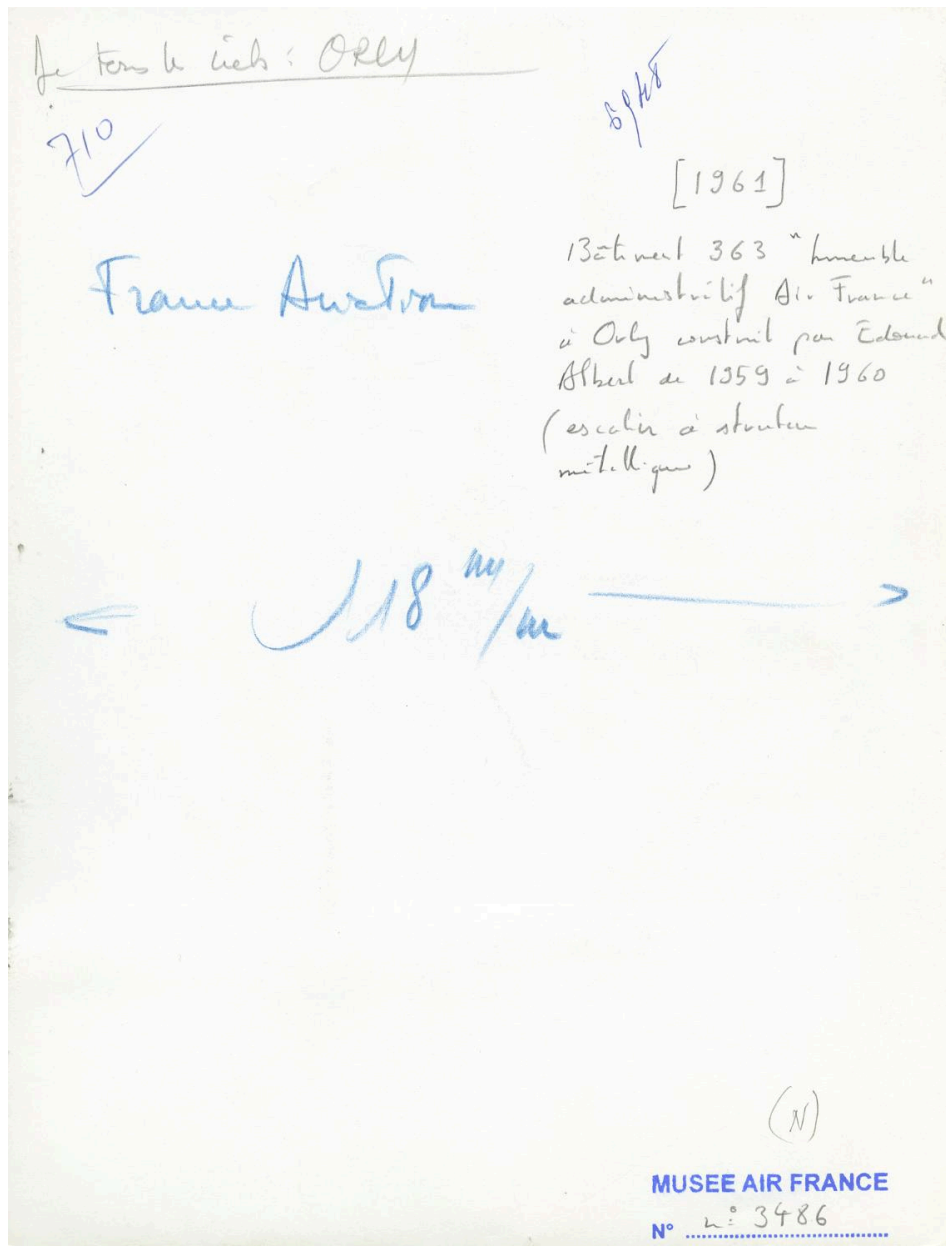 De tous les ciels : ORLY
710
[1961]
Bâtiment 363 "Immeuble
administratif Air France"
à Orly construit par Édouard
Albert de 1959 à 1960
(escalier à structure
métallique)
France Aviation
18 m/m
(N)
MUSEE AIR FRANCE
N° n° 3486